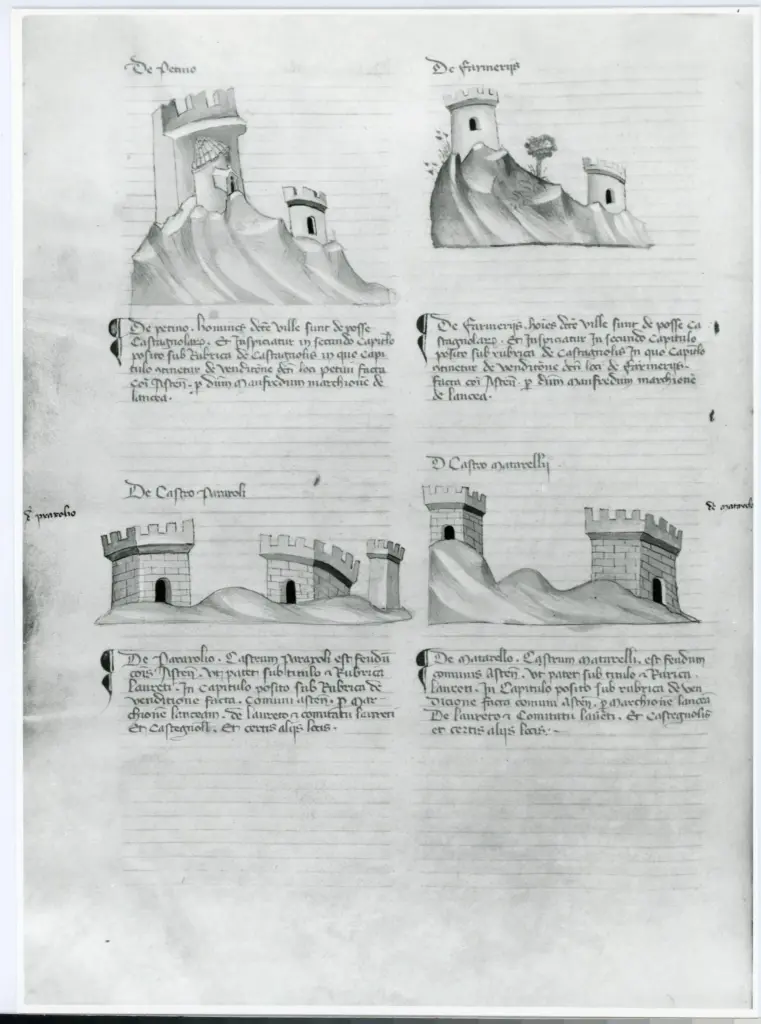 De Petino
De petino. homines dcte ville sunt de posse
Castagnolarum. Et Inspiciatur in secundo capitulo
posito sub Rubrica de Castagnolis in quo capi
tulo continetur de venditione dcti loci petini facta
coi Asten. p dum Manfredum marchione de
lancea.
De Farmerijs
De Farmerijs. hoies dcte ville sunt de posse ca
stagnolarum. Et Inspiciatur In secundo Capitulo
posito sub rubrica de Castagnolis In quo Capitulo
continetur de venditione dcti loci de Farmerijs.
facta coi Asten. p dum Manfredum marchione
de lancea.
De Castro Pararoli
de pararolio
De Pararolio. Castrum Pararoli est feudu
cois Asten. Vt patet sub titulo & Rubrica
Laureti. In Capitulo posito sub Rubrica de
venditione facta. Comuni asten. p Mar
chione lanceam. de laureto & comitatu laureti
Et Castegniol. Et certis alijs locis.
D Castro Matarelli
de matarelo
De Matarello. Castrum matarelli. est feudum
comunis asten. Vt patet sub titulo & Rurica
laureti. In Capitulo posito sub rubrica de ven
dicione facta comuni asten. p Marchione lancea
De laureto & Comitatu laureti. Et Castegnolis
et certis alijs locis.